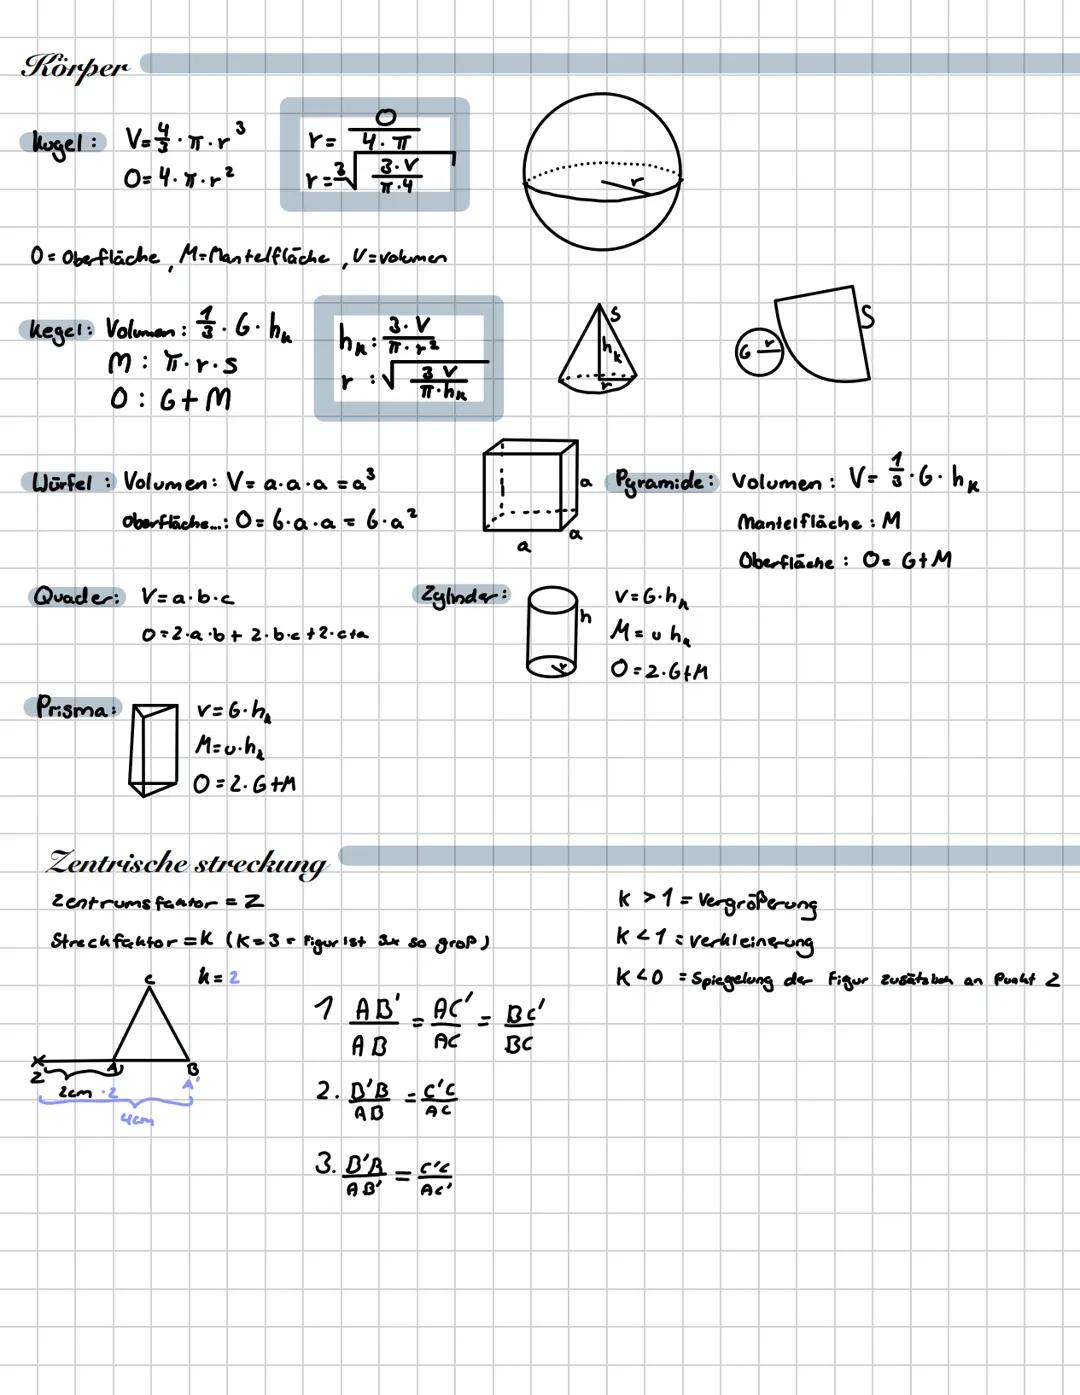 Körper
Kugel: V=4/3·π·r³
O=4·π·r²
r= O/4·π
r=³√3·V/π·4
r
O=Oberfläche, M=Mantelfläche, V=volumen
Kegel: Volumen: 1/3·G·hₖ
M: π·r·s
O: G+M
hₖ: 3·V/π·r²
r: √3 V/π·hₖ
S
hₖ
r
G r
S
Würfel: Volumen: V= a·a·a = a³
Oberfläche...: O= 6·a·a = 6·a²
a
a
a
Pyramide: Volumen: V= 1/3·G·hₖ
Mantelfläche: M
Oberfläche: O= G+M
Quader: V=a·b·c
O=2·a·b+ 2·b·c+2·c+a
Zylinder:
h
r
V=G·hₖ
M= u hₖ
O=2·G+M
Prisma:
V=G·hₖ
M=u·hₖ
O=2·G+M
Zentrische streckung
Zentrumsfaktor = Z
Streckfaktor = K (K=3 = Figur ist 3x so groß)
K >1 = Vergrößerung
K <1 = verkleinerung
K <0 = Spiegelung der Figur zusätzlich an Punkt Z
k= 2
C
Z A B
A'
2cm ·2
4cm
1 AB'/AB = AC'/AC = BC'/BC
2. B'B/AB = C'C/AC
3. B'B/AB' = C'C/AC'